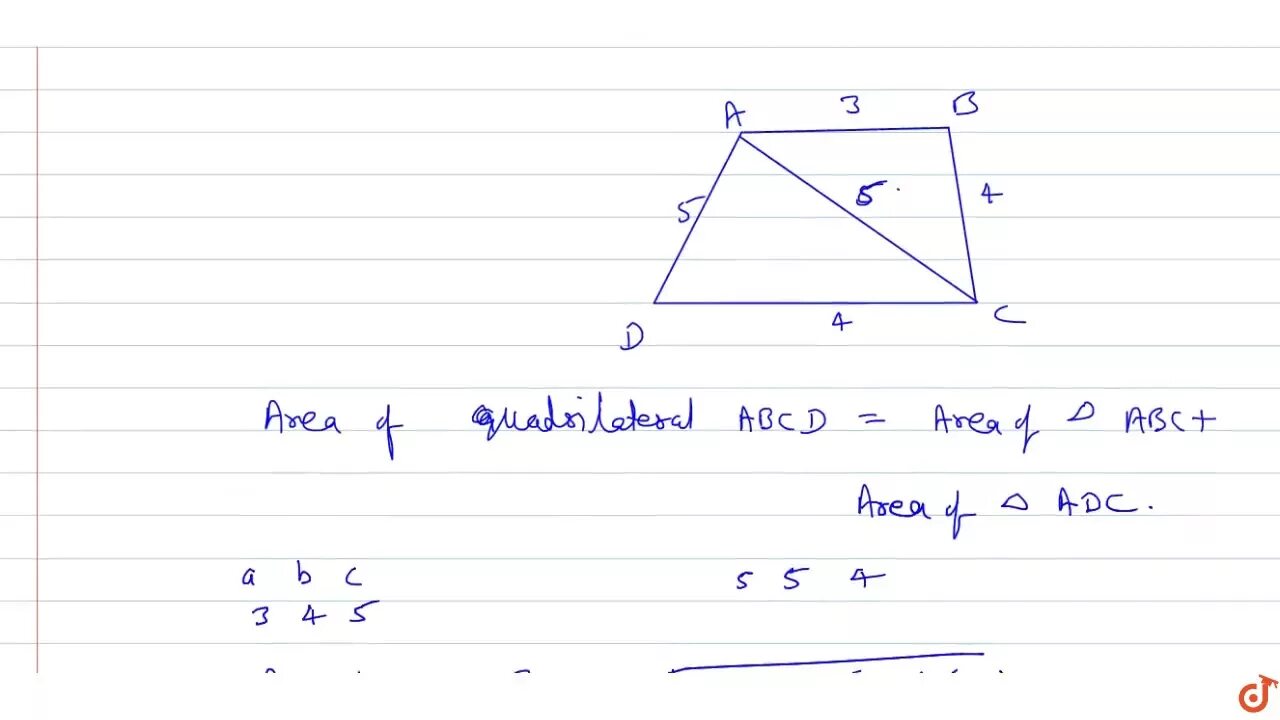 A 3 B
5 5 4
D 4 C
Area of quadrilateral ABCD = Area of △ ABC +
Area of △ ADC.
a b c 5 5 4
3 4 5